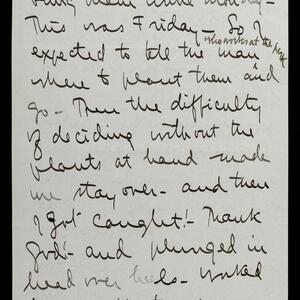 them
This was Friday – So I
who works at the
expected to tell the man
where to plant them and
go – Then the difficulty
of deciding without the
plants at hand made
me stay over – and then
I got caught! – Thank
God! – and plunged in
head over heels – worked